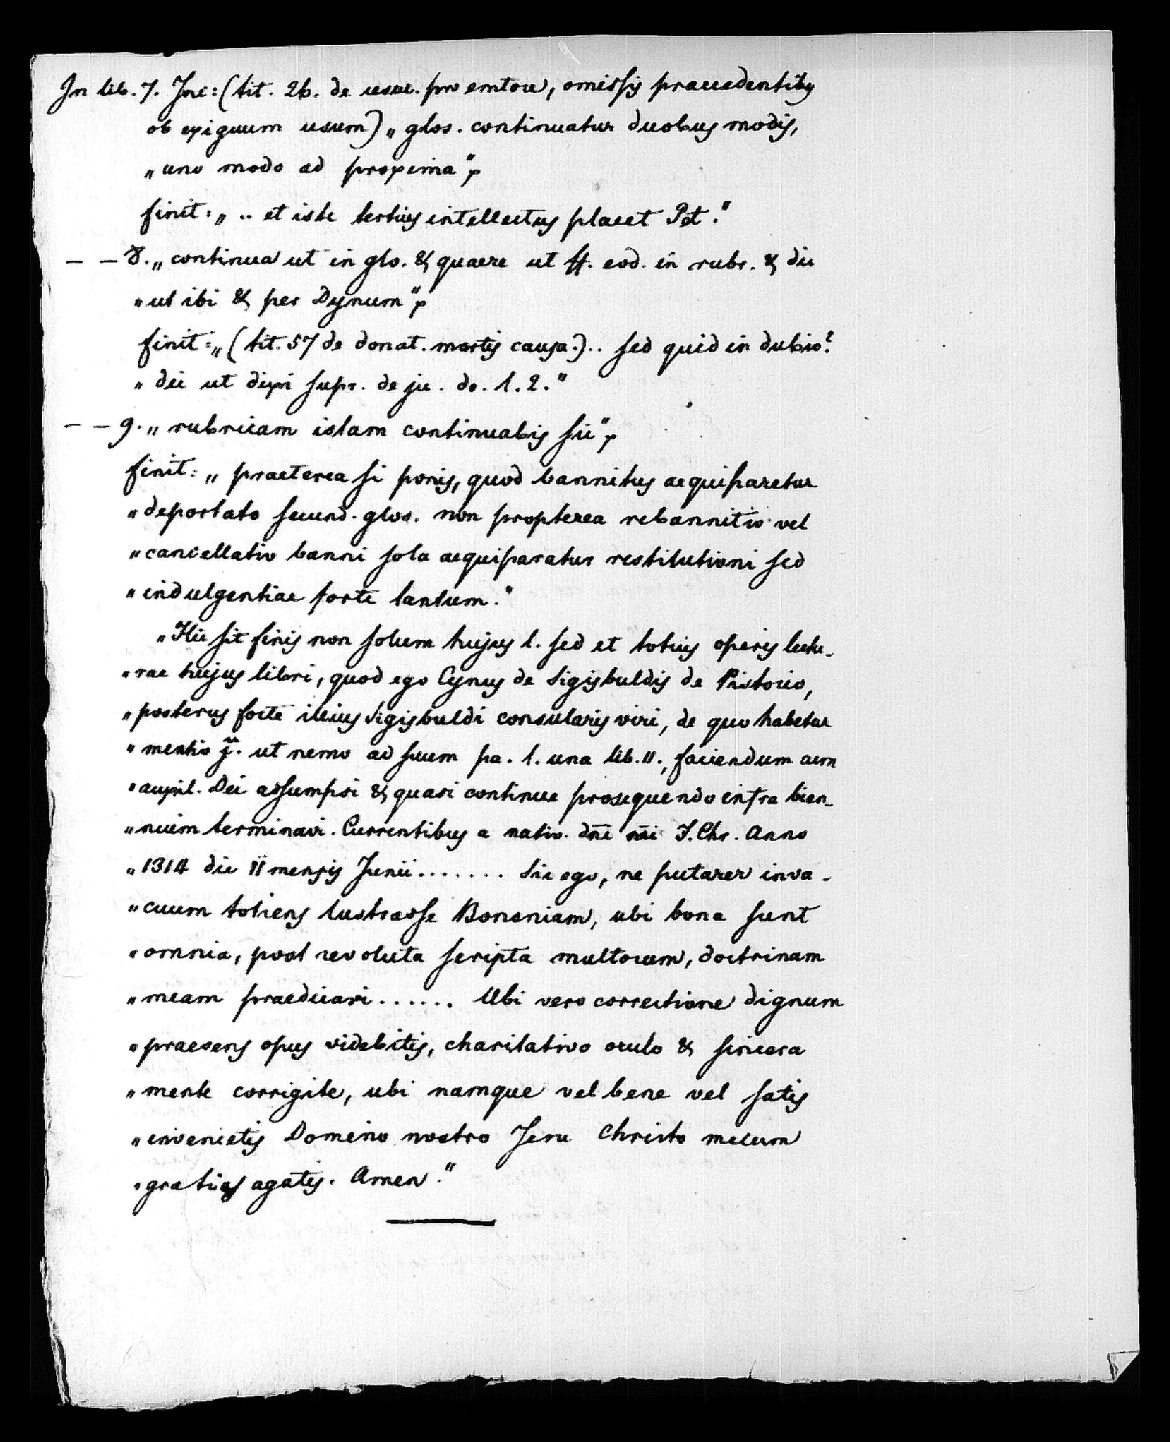 In lib. 7. Inc: (tit. 26. de usuc. pro emtore, omissis praecedentibus
ob exiguum usum) „ glos. continuatur duobus modis,
„ uno modo ad proxima“,
finit: „ .. et iste tertius intellectus placet Pet.“
— — 8. „ continua ut in glo. & quaere ut ff. eod. in rubr. & dic
„ ut ibi & per Dynum“,
finit: „ (tit. 57 de donat. mortis causa.) .. sed quid in dubio?
„ dic ut dixi supr. de ju. do. l. 2.“
— — 9. „ rubricam istam continuabis sic“,
finit: „ praeterea si ponis, quod bannitus aequiparetur
„ deportato secund. glos. non propterea rebannitio vel
„ cancellatio banni sola aequiparatur restitutioni sed
„ indulgentiae forte tantum.“
„ Hic sit finis non solum hujus l. sed et totius operis lectu-
„ rae hujus libri, quod ego Cynus de Sigisbuldis de Pistorio,
„ posterus forte illius Sigisbuldi consularis viri, de quo habetur
„ mentio ut nemo ad suum pa. l. una lib. 11., faciendum cum
„ auxil. Dei assumpsi & quasi continue prosequendo infra bien-
„ nium terminavi. Currentibus a nativ. dni nri J. Chr. Anno
„ 1314 die 11 mensis Junii ....... Sic ego, ne putarer inva-
„ cuum totiens lustrasse Bononiam, ubi bona sunt
„ omnia, post revoluta scripta multorum, doctrinam
„ meam praedicavi ...... Ubi vero correctione dignum
„ praesens opus videbitis, charitativo oculo & sincera
„ mente corrigite, ubi namque vel bene vel satis
„ invenietis Domino nostro Jesu Christo mecum
„ gratias agatis. Amen.“